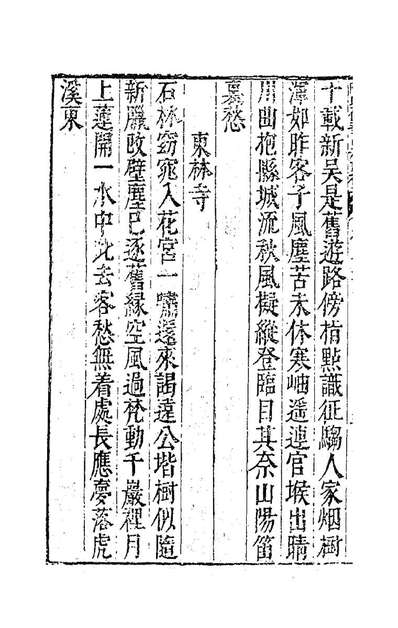 十載新吳是舊遊路傍指點識征騶人家烟樹
渾如昨客子風塵苦未休寒岫遥連官堠出晴
川曲抱縣城流秋風擬縱登臨目其奈山陽笛
裏愁
東林寺
石林窈窕入花宮一嘯還來謁遠公堦樹似隨
新臘改壁塵已逐舊緣空風過梵動千巖裡月
上蓮開一水中此去客愁無着處長應夢落虎
溪東